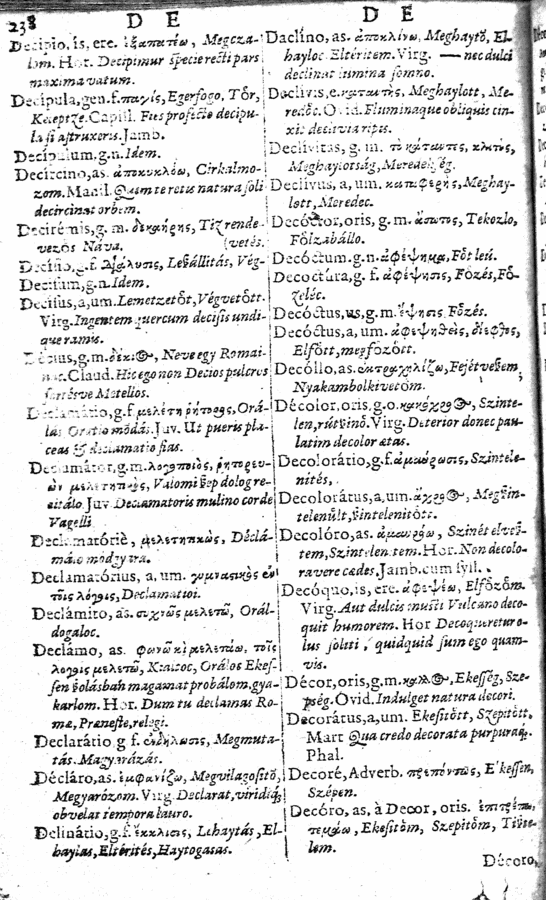 238
D E
Decipio, is, ere. ἐξαπατέω, Megcza-
lom. Hor. Decipimur specie recti pars
maxima vatum.
Decipula, gen. f. παγίς, Egerfogo, Tőr,
Keleptze. Capitul. Fus profecto decipu-
Jamb.
Decipulum, g. n. Idem.
Decircino, as. ἀποκυκλόω, Cirkalmo-
zom. Manil. Quem teretis natura soli
decircinat orbem.
Decirémis, g. m. δεκήρης, Tizrende
vezős Náva. (vetés.
Decisio, g. f. διάλυσις, Leßállitás, Vég-
Decisum, g. n. Idem.
Decisus, a, um. Lemetzetőt, Végvetőtt.
Virg. Ingentem quercum decisis undi-
que ramis.
Décius, g. m. Neve egy Romai-
Claud. Hic ego non Decios pulcros
Metellos.
Declamátio, g. f. μελέτη ῥήτορος, Orá-
lás Oratio módás. Juv. Ut pueris pla-
ceas & declamatio fias.
Declamátor, g. m. λογοποιὸς, ῥητορευ-
ὼν Valomi ßep dolog re-
citáló. Juv. Declamatoris mulino corde
Vagelli
Declamatóriè, μελετητικῶς, Déclá-
máló módgyára.
Declamatórius, a, um. γυμναστικὸς ἐν
τοῖς λόγοις, Declamatioi.
Declámito, as. συχνῶς μελετῶ, Orál-
dogaloc.
Declámo, as. φωνῶ κὶ μελετάω, τοῖς
λόγοις μελετῶ, Kiáltoc, Orálos Ekes-
sen ßolásbah magamat probálom, gya-
karlom. Hor. Dum tu declamas Ro-
mæ, Præneste, relegi.
Declarátio g. f. ἐνδήλωσις, Megmuta-
tás. Magyarázás.
Decláro, as. ἐμφανίζω, Megvilagosito,
Megyarózom. Virg. Declarat, viridiq;
obvelat tempora lauro.
Delinátio, g. f. ἔκκλισις, Lehaytás, El-
haylas, Eltérités, Haytogasas.
D E
Daclíno, as. ἀποκλίνω, Meghaytő, El-
hayloc. Eltéritem. Virg. — nec dulci
declinat lumina somno.
Daclivis, e. κατάντης, Meghaylott, Me-
redőc. Ovid. Fluminaque obliquis cin-
xit declivia ripis.
Declivitas, g. m. τὸ κάταντες, κλιτὺς,
Meghaylotság, Meredekség.
Declívus, a, um. καταφερὴς, Meghay-
lott, Meredec.
Decóctor, oris, g. m. ἄσωτος, Tekozlo,
Főlzabállo.
Decóctum. g. n. ἀφέψημα, Főt leú.
Decoctúra, g. f. ἀφέψησις, Főzés, Fő-
zeléc.
Decóctus, us, g. m. ἕψησις Főzés.
Decóctus, a, um. ἀφεψηθεὶς, δίεφθος,
Elfőtt, megfőzőtt.
Decóllo, as. ἐκτραχηλίζω, Fejét veßem,
Nyakambolkivetőm.
Décolor, oris, g. o. Szinte-
len, rútßinő. Virg. Deterior donec pau-
latim decolor ætas.
Decolorátio, g. f. ἀμαύρωσις, Szintele-
nités,
Decolorátus, a, um. Megßin-
telenült, ßintelenitőtt.
Decolóro, as. Szinét elveß-
tem, Szintelenitem. Hor. Non decolo-
ravere cædes. Jamb. cum syll.
Decóquo, is, ere. ἀφεψέω, Elfőzőm.
Virg. Aut dulcis musti Vulcano deco-
quit humorem. Hor Decoqueretur o-
lus soliti, quidquid sum ego quam-
vis.
Décor, oris, g. m. Ekesség, Sze-
pség. Ovid. Indulget natura decori.
Decorátus, a, um. Ekesitőtt, Szepitőtt.
Mart Qua credo decorata purpuraq;.
Phal.
Decoré, Adverb. πρεπόντως, Ekessen,
Szépen.
Decóro, as, à Decor, oris.
Ekesitőm, Szepitőm,
lem.
Décoro,